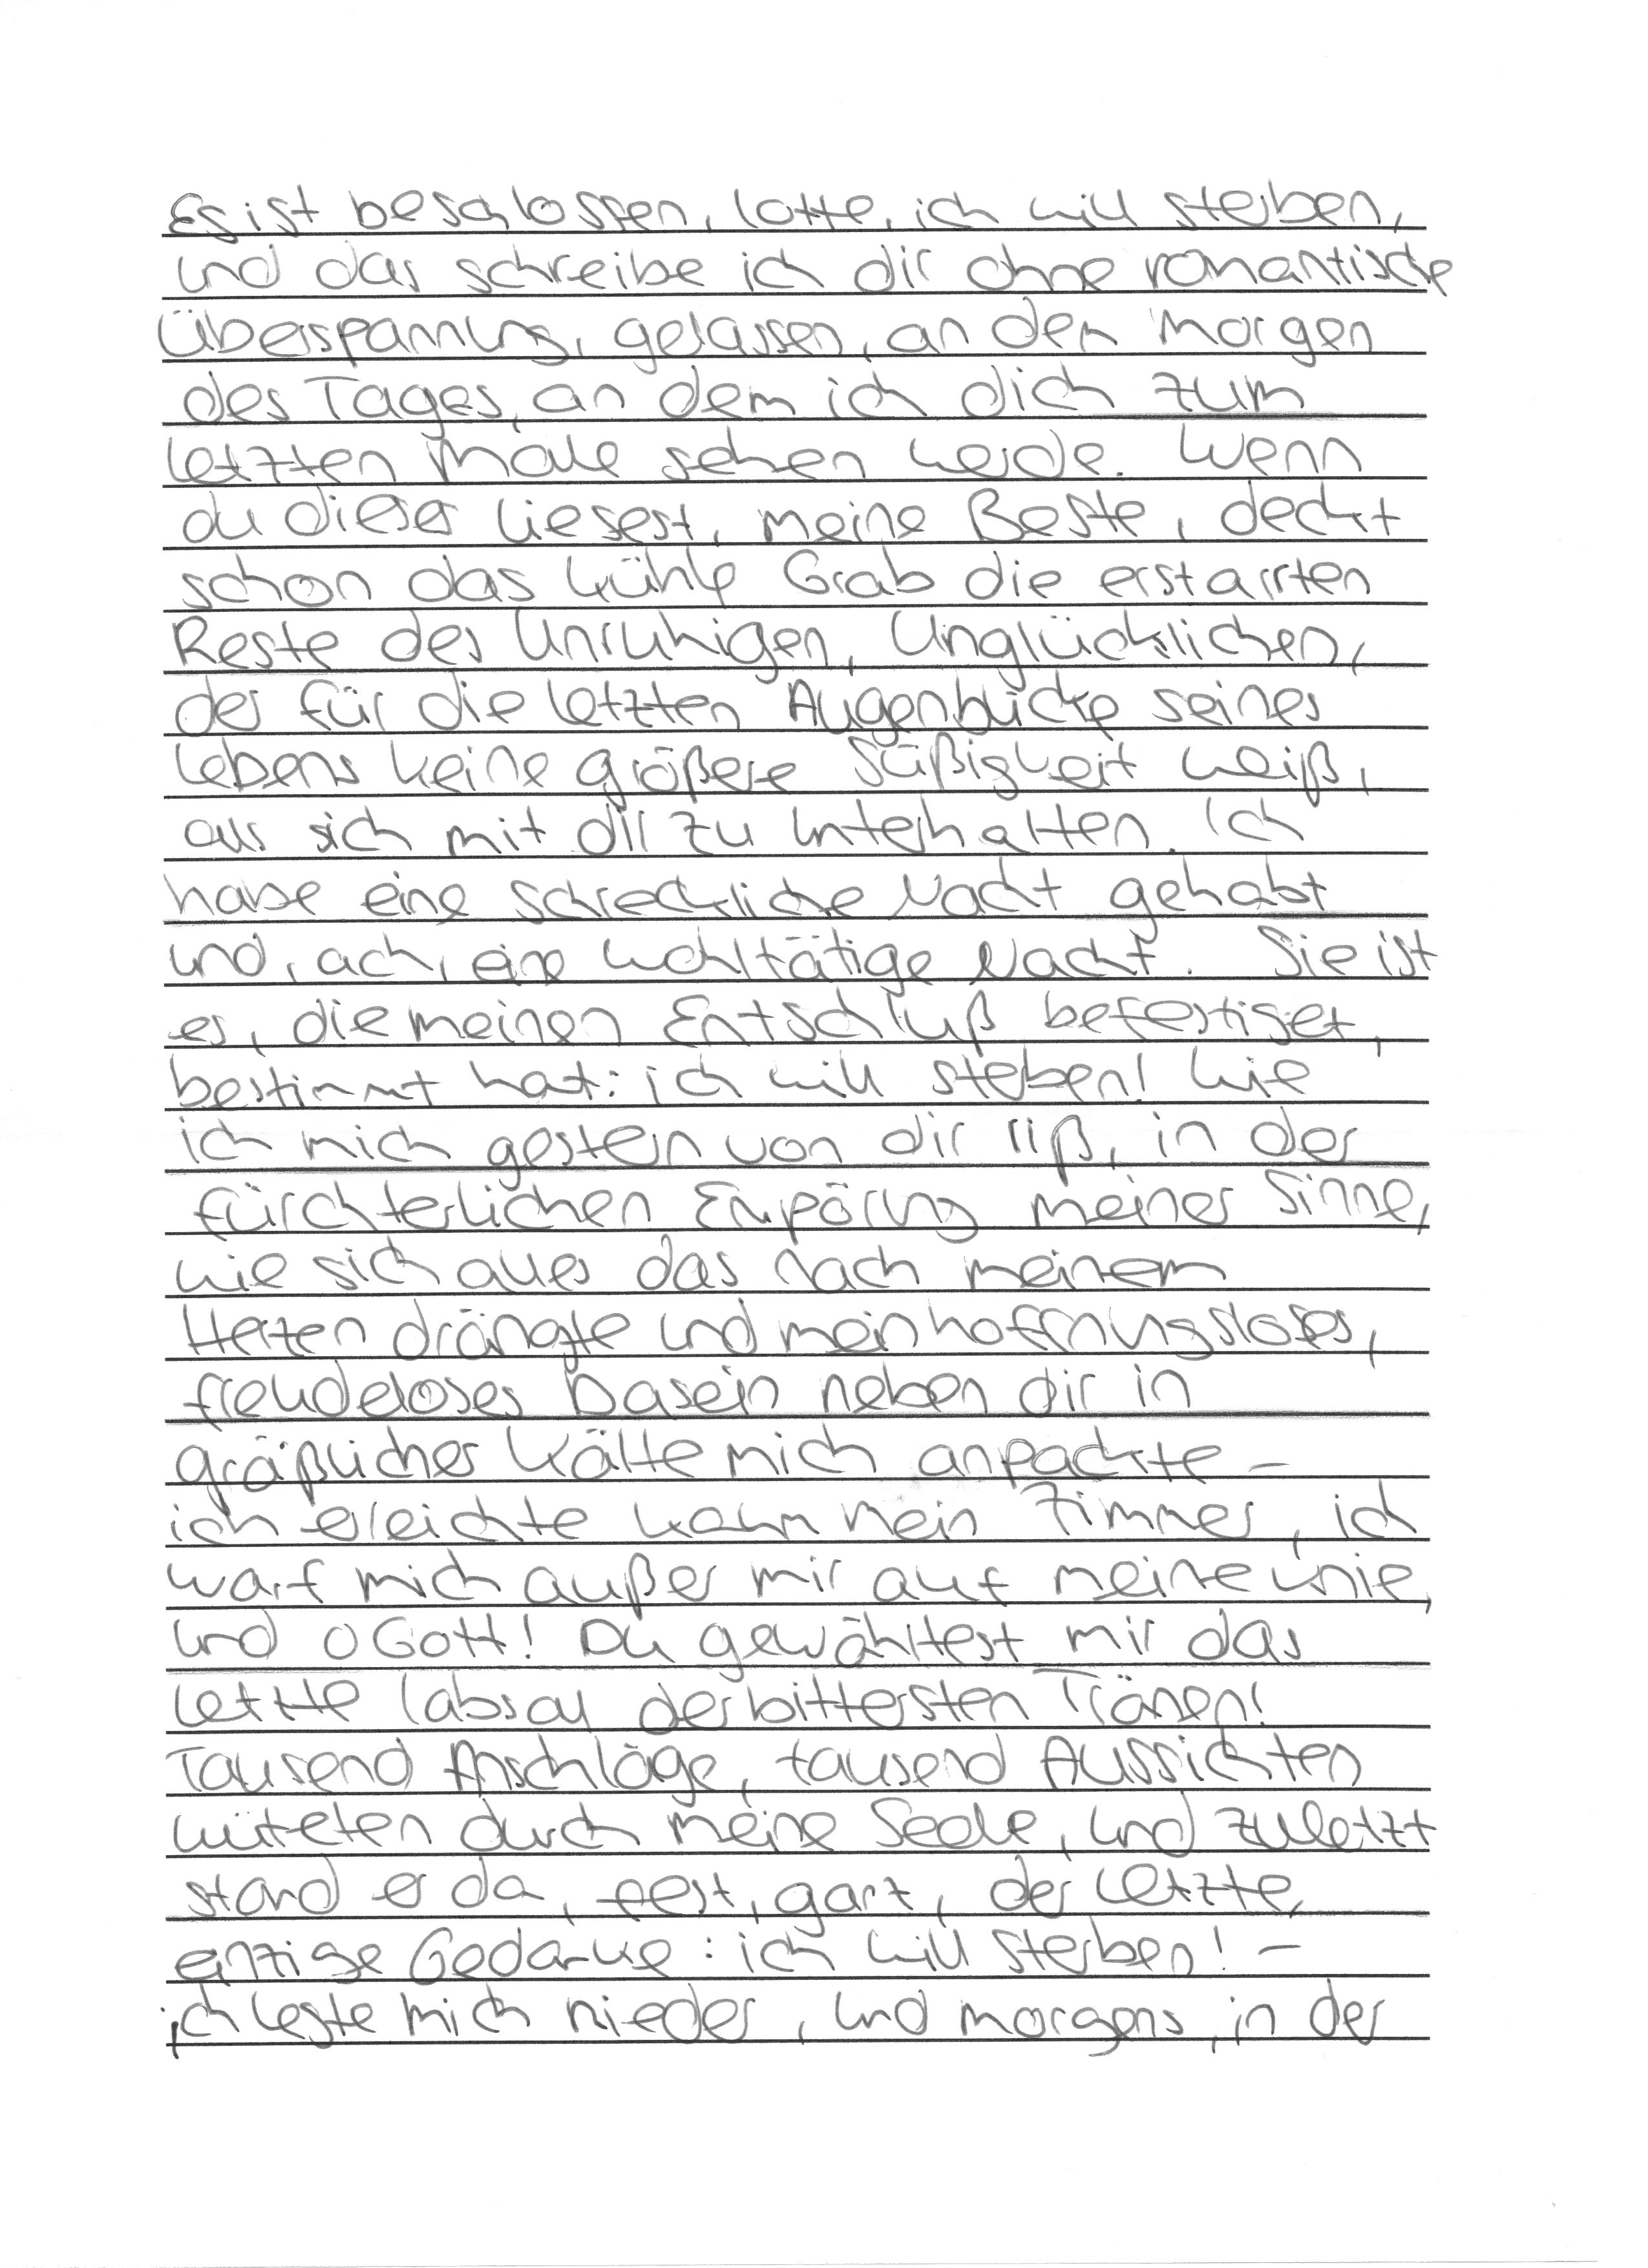 Es ist beschlossen, Lotte, ich will sterben,
und das schreibe ich dir ohne romantische
Überspannung, gelassen, an dem Morgen
des Tages, an dem ich dich zum
letzten Male sehen werde. Wenn
du dieses liesest, meine Beste, deckt
schon das kühle Grab die erstarrten
Reste des Unruhigen, Unglücklichen,
der für die letzten Augenblicke seines
Lebens keine größere Süßigkeit weiß,
als sich mit dir zu unterhalten. Ich
habe eine schreckliche Nacht gehabt
und, ach, eine wohltätige Nacht. Sie ist
es, die meinen Entschluß befestiget,
bestimmt hat: ich will sterben! Wie
ich mich gestern von dir riß, in der
fürchterlichen Empörung meiner Sinne,
wie sich alles das nach meinem
Herzen drängte und mein hoffnungsloses,
freudeloses Dasein neben dir in
gräßlicher Kälte mich anpackte –
ich erreichte kaum mein Zimmer, ich
warf mich außer mir auf meine Knie,
und o Gott! Du gewährtest mir das
letzte Labsal der bittersten Tränen!
Tausend Anschläge, tausend Aussichten
wüteten durch meine Seele, und zuletzt
stand er da, fest, ganz, der letzte,
einzige Gedanke: ich will sterben! –
ich legte mich nieder, und morgens, in der